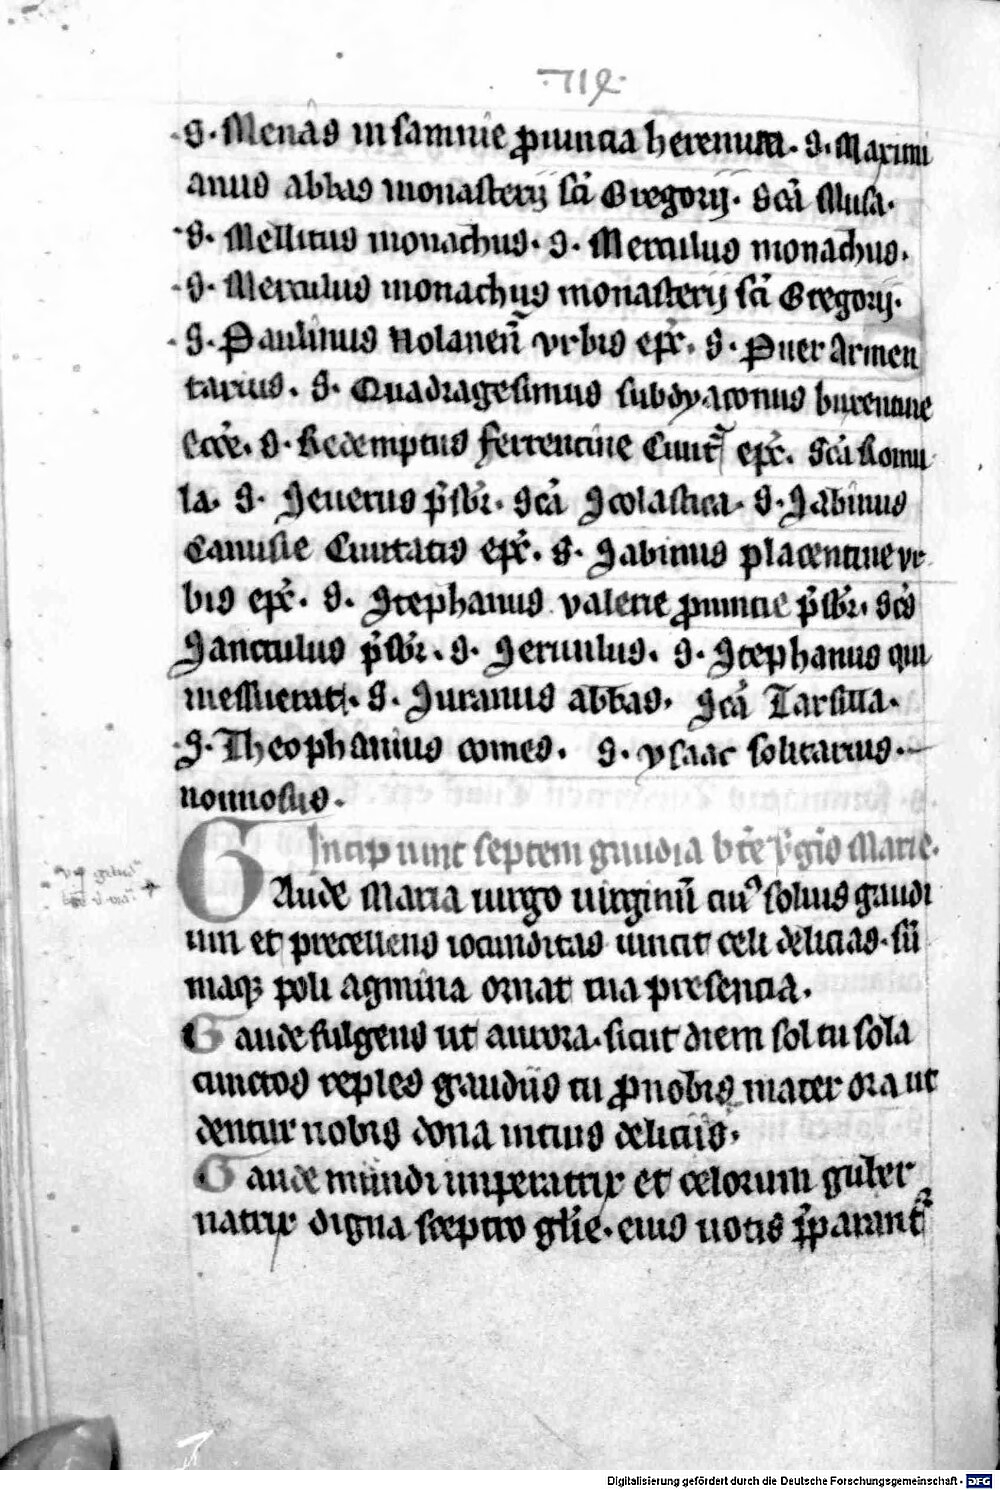 ·S· Menas in samnie ꝓuincia heremita. S. Maximi
anus abbas monasterij sc̄i Gregorij. Sc̄a Musa.
·S· Mellitus monachus. S. Merculus monachus.
·S· Merculus monachus monasterij sc̄i Gregorij.
·S· Paulinus Nolanen̄ vrbis ep̄c. S. Puer Armen
tarius. S. Quadragesimus subdyaconus buxentine
ecc̄e. S. Redemptus ferrentine Ciuit̄ ep̄c. Sc̄a Romu
la. S. Seuerus p̄sbr̄. Sc̄a Scolastica. S. Sabinus
Canusie Ciuitatis ep̄c. S. Sabinus placentine vr
bis ep̄c. S. Stephanus valerie ꝓuincie p̄sbr̄. Sc̄s
Sanctulus p̄sbr̄. S. Seruulus. S. Stephanus qui
messuerat. S. Suranus abbas. Sc̄a Tarsilla.
S. Theophanius comes. S. ysaac solitarius.
nonnosus.
Incipiunt septem gaudia bt̄e v̄gis Marie.
Gaude Maria uirgo uirginū cuꝰ solius gaudi
um et precellens iocunditas uincit celi delicias. sū
maqꝫ poli agmina ornat tua presencia.
Gaude fulgens ut aurora. sicut diem sol tu sola
cunctos reples gaudiis tu ꝓ nobis mater ora ut
dentur nobis dona intius deliciis.
Gaude mundi imperatrix et celorum guber
natrix digna sceptro glīe. eius uotis p̄parant̄
Digitalisierung gefördert durch die Deutsche Forschungsgemeinschaft - DFG